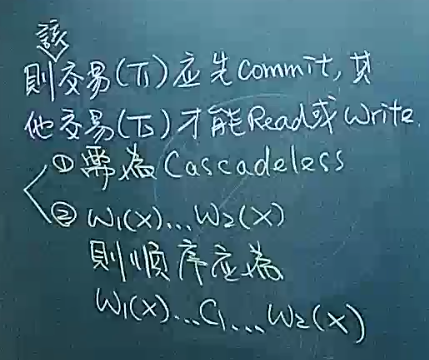 該
則交易(T1)应先Commit,其
他交易(T2)才能Read或Write.
①需為Cascadeless
②W1(X)...W2(X)
則順序应為
W1(X)...C1...W2(X)